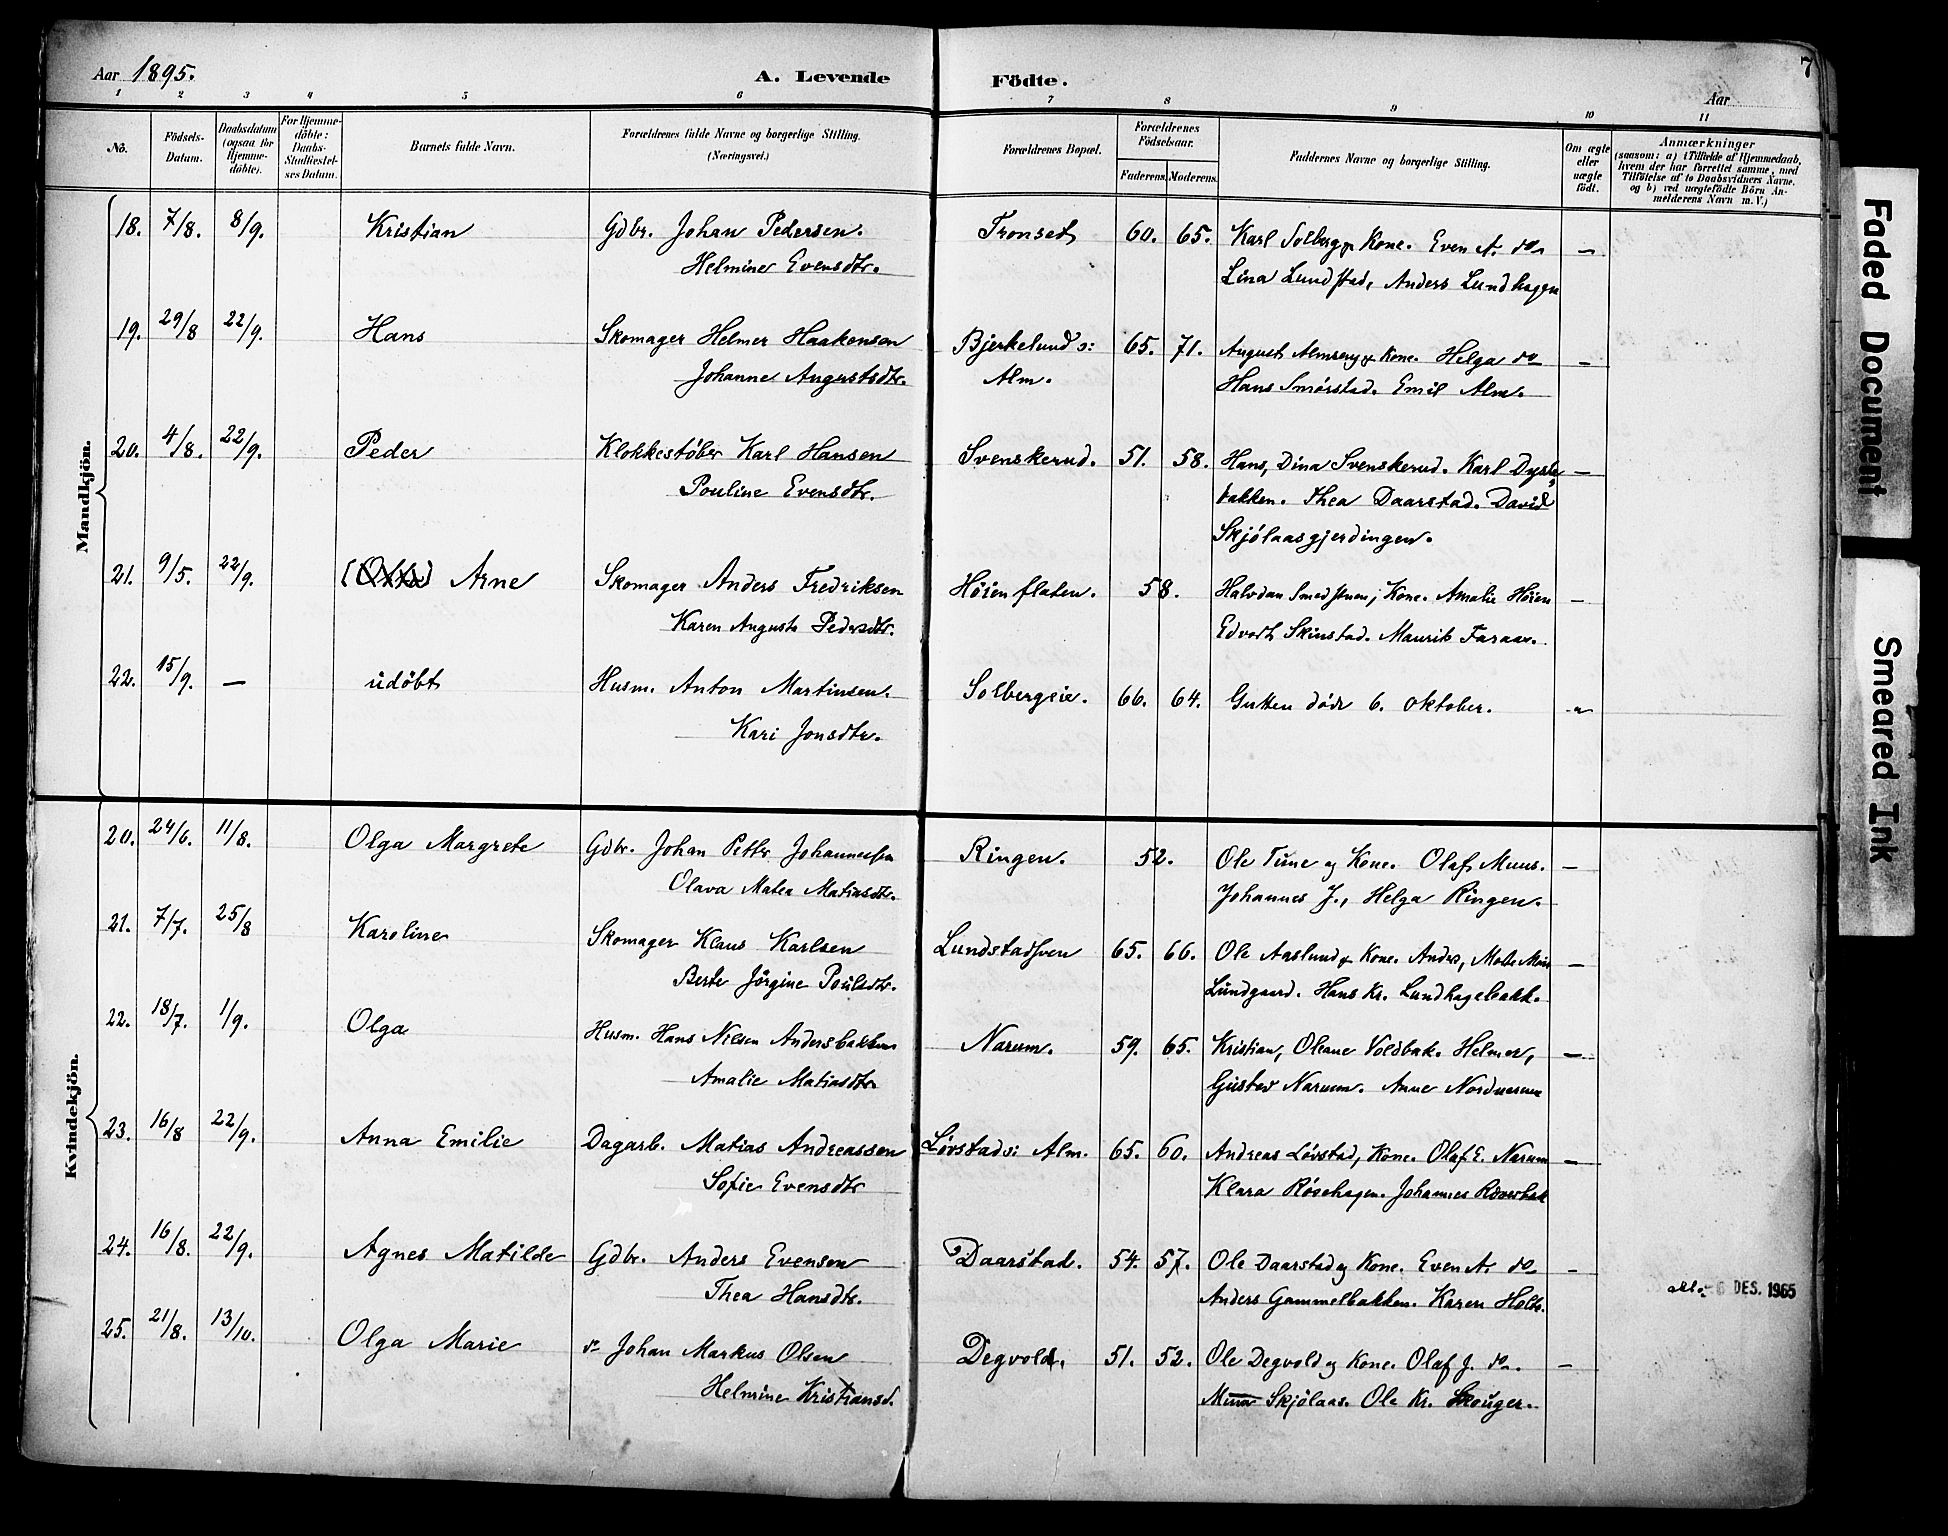 7
Aar 1895. A. Levende Födte. Aar
1 2 3 4 5 6 7 8 9 10 11
No. Födsels-Datum. Daabsdatum (ogsaa for Hjemme-döbte). For Hjemme-döbte: Daabs-Stadfæstel-ses Datum. Barnets fulde Navn. Forældrenes fulde Navne og borgerlige Stilling. (Næringsvei.) Forældrenes Bopæl. Forældrenes Födselsaar. Faderens. Moderens. Faddernes Navne og borgerlige Stilling. Om ægte eller uægte födt. Anmærkninger (saasom: a) i Tilfælde af Hjemmedaab, hvem der har forrettet samme, med Tilföielse af to Daabsvidners Navne, og b) ved uægtefödte Börn An-melderens Navn m. V.)
Mandkjön.
18. 7/8. 8/9. Kristian Gdbr. Johan Pedersen. Tronset 60. 65. Karl Solberg og Kone. Even A. do —
Helmine Evensdtr. Lina Lundstad, Anders Lundhagen
19. 29/8 22/9. Hans Skomager Helmer Haakensen Bjerkelund s: 65. 71. August Almseng og Kone. Helga do —
Johanne Augustsdtr. Alm. Hans Smörstad. Emil Alm.
20. 4/8. 22/9. Peder Klokkestöber Karl Hansen Svenskerud. 51. 58. Hans, Dina Svenskerud. Karl Dyste —
Pouline Evensdtr. bakken. Thea Daarstad. David
Skjölaasgjerdingen.
21. 9/5. 22/9. Arne Skomager Anders Fredriksen Hörenflaten. 58. Halvdan Smedstuen, Kone. Amalie Hören —
Karen Augusta Pedersdtr. Edvart Skinstad. Maurits Faraas.
22. 15/9. — udöbt Husm. Anton Martinsen. Solbergeie. 66. 64. Gutten döde 6. Oktober.
Kari Jonsdtr.
Kvindekjön.
20. 24/6. 11/8. Olga Margrete Gdbr. Johan Petter Johannessen Ringen. 52. Ole Tune og Kone. Olaf Muus. —
Olava Matea Matiasdtr. Johannes J., Helga Ringen.
21. 7/7. 25/8 Karoline Skomager Klaus Karlsen Lundstadsven 65. 66. Ole Aaslund og Kone. Andrs, Malte —
Berte Jörgine Poulsdtr. Lundgaard. Hans Kr. Lundhagebakk.
22. 18/7. 1/9. Olga Husm. Hans Nilsen Andersbakken Narum. 59. 65. Kristian, Oleane Voldbak. Helmer, —
Amalie Matiasdtr Gustav Narum. Anne Nordnarum
23. 16/8 22/9. Anna Emilie Dagarb. Matias Andreassen Lövstad s: Alm. 65. 60. Andreas Lövstad, Kone. Olaf E. Narum —
Sofie Evensdtr Klara Rösehagen. Johannes
24. 16/8. 22/9. Agnes Matilde Gdbr. Anders Evensen Daarstad. 54. 57. Ole Daarstad og Kone. Even A. do —
Thea Hansdtr. Anders Gammelbakken. Karen Holte. DES. 1965
25. 21/8. 13/10. Olga Marie do Johan Markus Olsen Degvold. 51. 52. Ole Degvold og Kone. Olaf J. do. —
Helmine Kristiansd. Mina Skjölaas. Ole Kr. Skouger.
Faded Document
Smeared Ink